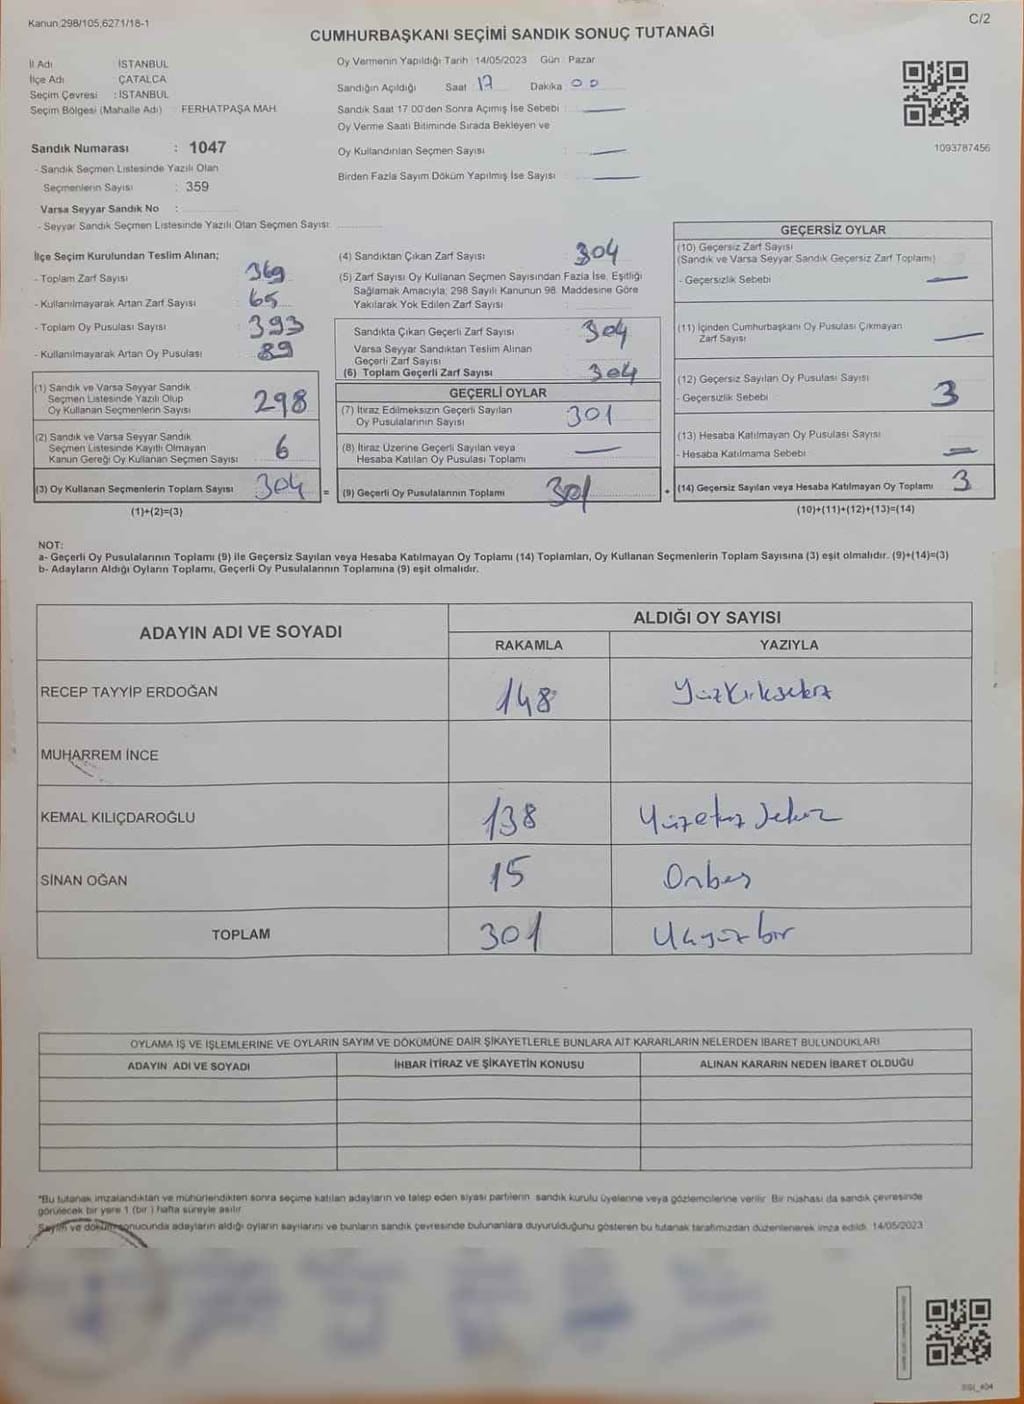 Kanun 298/105,6271/18-1
C/2
CUMHURBAŞKANI SEÇİMİ SANDIK SONUÇ TUTANAĞI
İl Adı İSTANBUL
İlçe Adı ÇATALCA
Seçim Çevresi : İSTANBUL
Seçim Bölgesi (Mahalle Adı) : FERHATPAŞA MAH.
Sandık Numarası : 1047
- Sandık Seçmen Listesinde Yazılı Olan
Seçmenlerin Sayısı : 359
Varsa Seyyar Sandık No :
- Seyyar Sandık Seçmen Listesinde Yazılı Olan Seçmen Sayısı:
Oy Vermenin Yapıldığı Tarih : 14/05/2023 Gün : Pazar
Sandığın Açıldığı Saat 17 Dakika 00
Sandık Saat 17.00'den Sonra Açımış İse Sebebi :
Oy Verme Saati Bitiminde Sırada Bekleyen ve
Oy Kullandırılan Seçmen Sayısı :
Birden Fazla Sayım Döküm Yapılmış İse Sayısı :
1093787456
İlçe Seçim Kurulundan Teslim Alınan;
- Toplam Zarf Sayısı : 369
- Kullanılmayarak Artan Zarf Sayısı : 65
- Toplam Oy Pusulası Sayısı : 393
- Kullanılmayarak Artan Oy Pusulası : 89
(1) Sandık ve Varsa Seyyar Sandık
Seçmen Listesinde Yazılı Olup
Oy Kullanan Seçmenlerin Sayısı 298
(2) Sandık ve Varsa Seyyar Sandık
Seçmen Listesinde Kayıtlı Olmayan
Kanun Gereği Oy Kullanan Seçmen Sayısı 6
(3) Oy Kullanan Seçmenlerin Toplam Sayısı 304 =
(1)+(2)=(3)
(4) Sandıktan Çıkan Zarf Sayısı : 304
(5) Zarf Sayısı Oy Kullanan Seçmen Sayısından Fazla İse, Eşitliği
Sağlamak Amacıyla; 298 Sayılı Kanunun 98. Maddesine Göre
Yakılarak Yok Edilen Zarf Sayısı :
Sandıkta Çıkan Geçerli Zarf Sayısı 304
Varsa Seyyar Sandıktan Teslim Alınan
Geçerli Zarf Sayısı
(6) Toplam Geçerli Zarf Sayısı 304
GEÇERLİ OYLAR
(7) İtiraz Edilmeksizin Geçerli Sayılan
Oy Pusulalarının Sayısı 301
(8) İtiraz Üzerine Geçerli Sayılan veya
Hesaba Katılan Oy Pusulası Toplamı
(9) Geçerli Oy Pusulalarının Toplamı 301 +
GEÇERSİZ OYLAR
(10) Geçersiz Zarf Sayısı
(Sandık ve Varsa Seyyar Sandık Geçersiz Zarf Toplamı)
- Geçersizlik Sebebi
(11) İçinden Cumhurbaşkanı Oy Pusulası Çıkmayan
Zarf Sayısı
(12) Geçersiz Sayılan Oy Pusulası Sayısı
- Geçersizlik Sebebi 3
(13) Hesaba Katılmayan Oy Pusulası Sayısı
- Hesaba Katılmama Sebebi
(14) Geçersiz Sayılan veya Hesaba Katılmayan Oy Toplamı 3
(10)+(11)+(12)+(13)=(14)
NOT:
a- Geçerli Oy Pusulalarının Toplamı (9) ile Geçersiz Sayılan veya Hesaba Katılmayan Oy Toplamı (14) Toplamları, Oy Kullanan Seçmenlerin Toplam Sayısına (3) eşit olmalıdır. (9)+(14)=(3)
b- Adayların Aldığı Oyların Toplamı, Geçerli Oy Pusulalarının Toplamına (9) eşit olmalıdır.
ADAYIN ADI VE SOYADI
ALDIĞI OY SAYISI
RAKAMLA YAZIYLA
RECEP TAYYİP ERDOĞAN 148 Yüzkırksekiz
MUHARREM İNCE
KEMAL KILIÇDAROĞLU 138 Yüzotuz sekiz
SİNAN OĞAN 15 Onbeş
TOPLAM 301 Üçyüzbir
OYLAMA İŞ VE İŞLEMLERİNE VE OYLARIN SAYIM VE DÖKÜMÜNE DAİR ŞİKAYETLERLE BUNLARA AİT KARARLARIN NELERDEN İBARET BULUNDUKLARI
ADAYIN ADI VE SOYADI İHBAR İTİRAZ VE ŞİKAYETİN KONUSU ALINAN KARARIN NEDEN İBARET OLDUĞU
"Bu tutanak imzalandıktan ve mühürlendikten sonra seçime katılan adayların ve talep eden siyasi partilerin sandık kurulu üyelerine veya gözlemcilerine verilir. Bir nüshası da sandık çevresinde
görülecek bir yere 1 (bir ) hafta süreyle asılır.
Sayım ve döküm sonucunda adayların aldığı oyların sayılarını ve bunların sandık çevresinde bulunanlara duyurulduğunu gösteren bu tutanak tarafımızdan düzenlenerek imza edildi. 14/05/2023